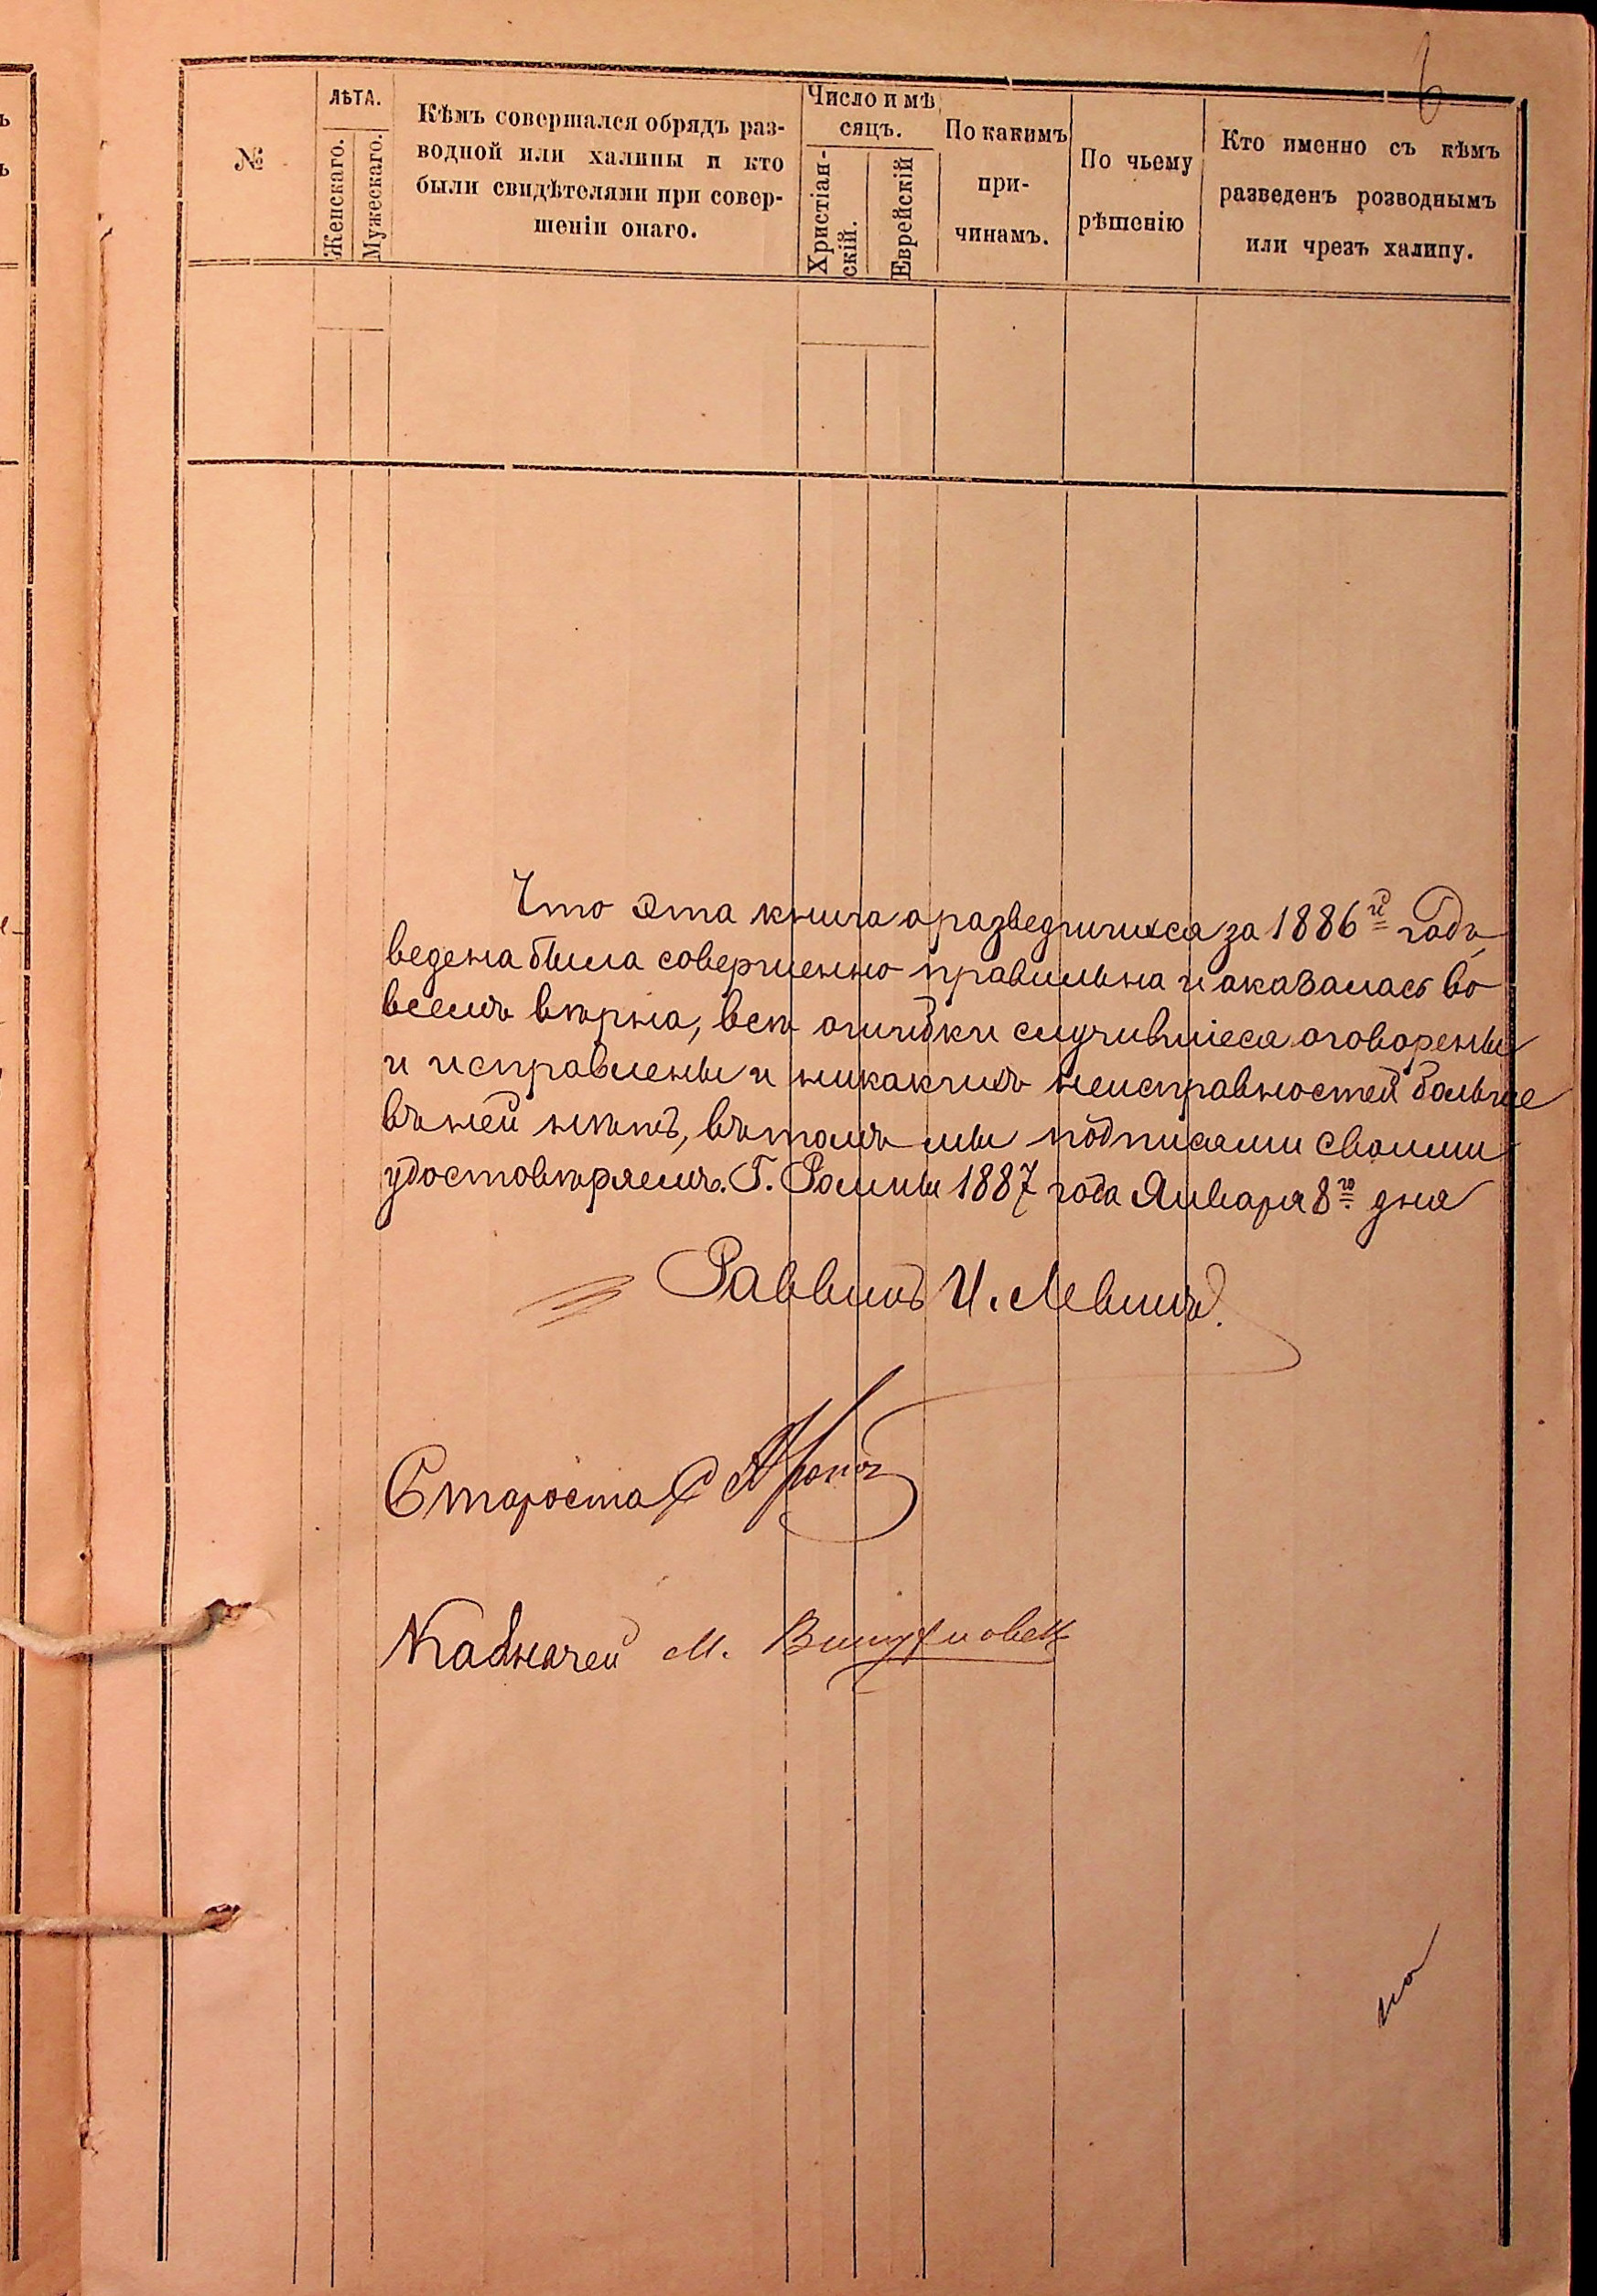 6
№
ЛѢТА.
Женскаго.
Мужескаго.
Кѣмъ совершался обрядъ раз-
водной или халицы и кто
были свидѣтелями при совер-
шеніи онаго.
Число и мѣ
сяцъ.
Христіан-
скій.
Еврейскій
По какимъ
при-
чинамъ.
По чьему
рѣшенію
Кто именно съ кѣмъ
разведенъ розводнымъ
или чрезъ халицу.
Что эта книга о разведшихся за 1886й годъ
ведена была совершенно правильна и оказалась во
всемъ вѣрна, всѣ ошибки случившіеся оговорены
и исправлены и никакихъ неисправностей больше
въ ней нѣтъ, въ томъ мы подписями своими
удостовѣряемъ. Г. Ромны 1887 года Января 8го дня
Раввинъ И. Левинъ.
Староста
Казначей М.